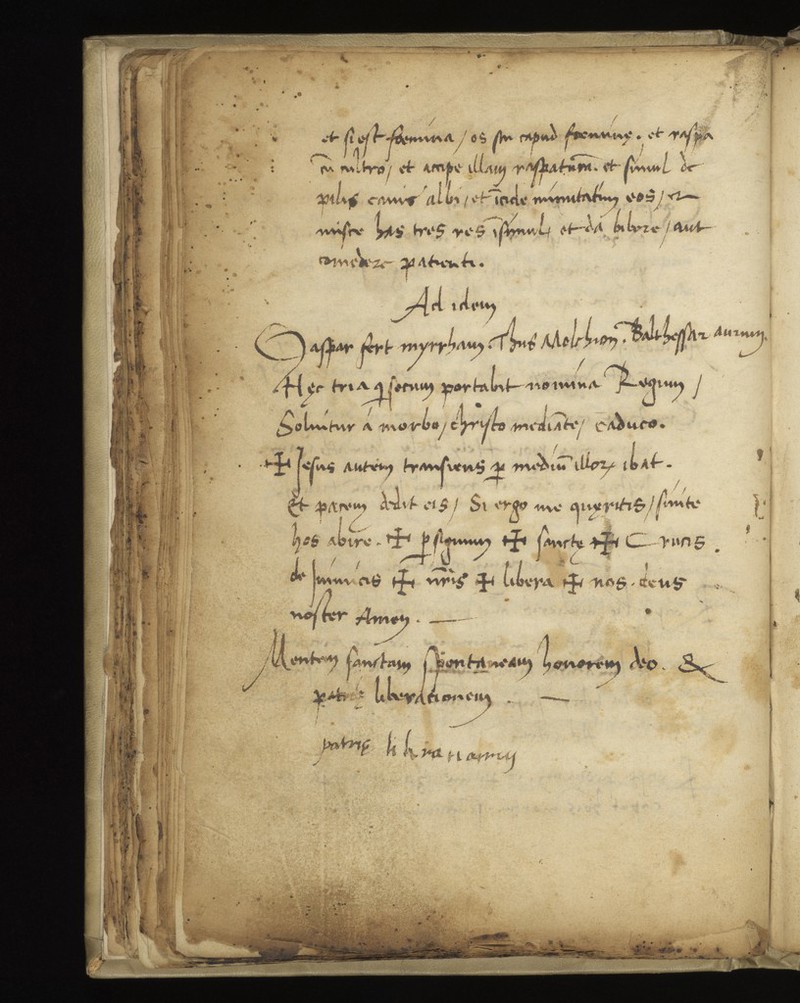 et si est foemina / os seu capud foeminę. et raspa
cū cultro / et accipe illam raspaturā. et simul de
pilis canis albi / et īcide minutatim eos / et
misce has tres res īsimul / et da bibere / aut
comedere patienti.
Ad idem
Gaspar fert myrrham, Thus Melchion. Balthessar aurum.
Hęc tria q̄ secum portabit nomina Regum /
Soluitur á morbo / christo mediāte / caduco.
✠ Jesus autem transiens ꝑ mediū illoꝝ ibat.
Et pacem dedit eis / Si ergo me quęritis / sinite
hos abire. ✠ ꝑ signum ✠ sanctę ✠ Crucis.
de Inimicis ✠ nr̄is ✠ libera ✠ nos. deus
noster Amen. —
Mentem sanctam spontaneam honorem deo. &
patrię liberationem. —
patrię